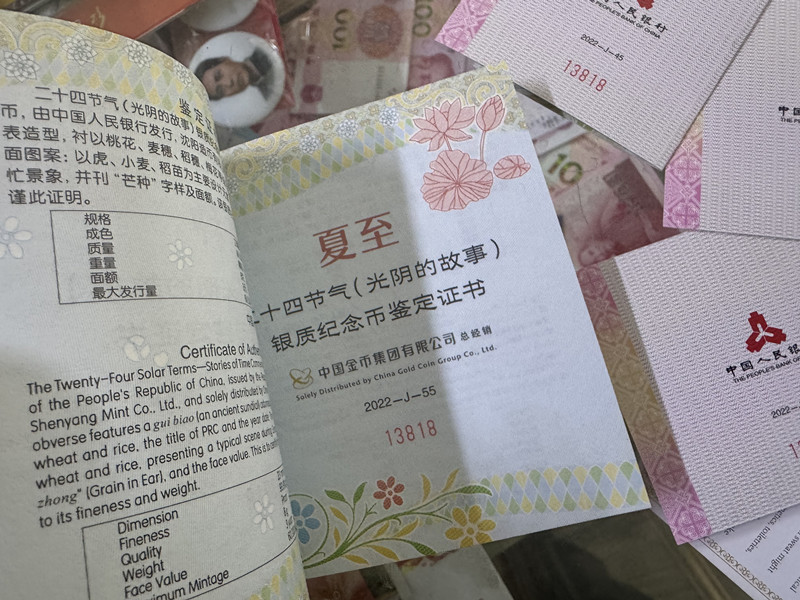 鉴定
二十四节气(光阴的故事)
币,由中国人民银行发行,沈阳造币
表造型,衬以桃花、麦穗、稻穗、
面图案:以虎、小麦、稻苗为主要设计
忙景象,并刊“芒种”字样及面额。
谨此证明。
规格
成色
质量
重量
面额
最大发行量
Certificate of
The Twenty-Four Solar Terms—Stories of Time
of the People's Republic of China, issued by the
Shenyang Mint Co., Ltd., and solely distributed by
obverse features a gui biao (an ancient sundial
wheat and rice, the title of PRC and the year
wheat and rice, presenting a typical scene during
zhong" (Grain in Ear), and the face value. This is to
to its fineness and weight.
Dimension
Fineness
Quality
Weight
Face Value
Mintage
夏至
十四节气(光阴的故事)
银质纪念币鉴定证书
中国金币集团有限公司 总经销
Solely Distributed by China Gold Coin Group Co., Ltd.
2022-J-55
13818
人民银行
PEOPLE'S BANK OF CHINA
2022-J-45
13818
中国
THE PEOPLE'S
中国人民银
THE PEOPLE'S BANK
2022-
100
10